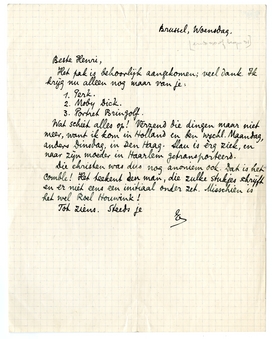 Brussel, Woensdag.
Beste Henri,
Het pak is behoorlijk aangekomen; veel dank. Ik
krijg nu alleen nog maar van je:
1. Perk.
2. Moby Dick.
3. Portret Bringolf.
Wat schiet alles op! Verzend die dingen maar niet
meer, want ik kom in Holland en ben wscht. Maandag,
anders Dinsdag, in den Haag. Slau is erg ziek, en
naar zijn moeder in Haarlem getransporteerd.
Die christen was dus nog anoniem ook. Dat is het
comble! Het teekent den man, die zulke stukjes schrijft
en er niet eens een initiaal onder zet. Misschien is
het wel Roel Houwink!
Tot ziens. Steeds je
E